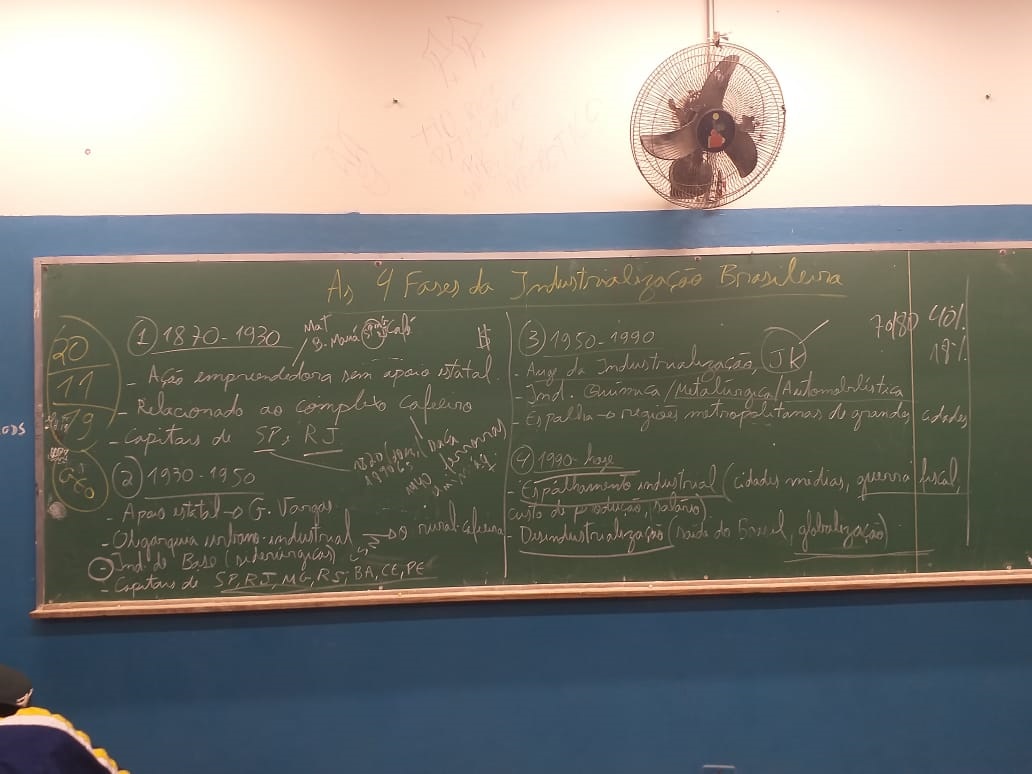 As 4 Fases da Industrialização Brasileira
20
11
19
1 1870-1930
Café
- Ação empreendedora sem apoio estatal.
- Relacionado ao complexo cafeeiro
- Capitais de SP, RJ
2 1930-1950
- Apoio estatal → G. Vargas
- Oligarquia urbano-industrial → rural-cafeeira
- Ind. de Base (siderúrgicas) CSN
- Capitais de SP, RJ, MG, RS, BA, CE, PE
3 1950-1990
- Auge da Industrialização, JK
- Ind. Química/Metalúrgica/Automobilística
- Espalha → regiões metropolitanas de grandes cidades
70/80 40%
18%
4 1990-hoje
- Espalhamento industrial (cidades médias, guerra fiscal,
custo de produção, salário)
- Desindustrialização (saída do Brasil, globalização)